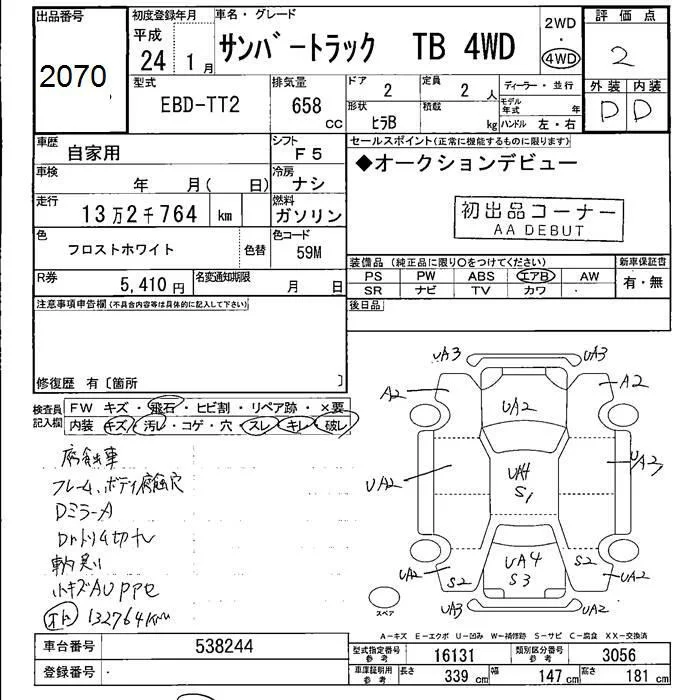 出品番号
2070
初度登録年月
平成
24 1月
車名・グレード
サンバートラック TB 4WD
2WD
・
4WD
評価点
2
外装 内装
D D
型式
EBD-TT2
排気量
658
CC
ドア
2
定員
2 人
形状
ヒラB
積載
kg
ディーラー・並行
モデル年式 年
ハンドル 左・右
車歴
自家用
シフト
F5
車検
年 月( 日)
冷房
ナシ
走行
13万2千764 km
燃料
ガソリン
色
フロストホワイト
色替
色コード
59M
R券
5,410円
名変通知期限
月 日
セールスポイント(正常に機能するものに限ります)
◆オークションデビュー
初出品コーナー
AA DEBUT
装備品(純正品に限り○をつけてください)
PS PW ABS エアB AW
SR ナビ TV カワ ・
新車保証書
有・無
後日品
注意事項申告欄(不具合内容等は具体的に記入して下さい)
修復歴 有〔箇所 〕
検査員記入欄
FW キズ・飛石・ヒビ割・リペア跡・×要
内装 キズ・汚レ・コゲ・穴・スレ・キレ・破レ
腐蝕車
フレーム、ボディ腐蝕穴
Dミラ-A
Drトリム切れ
小キズAUPPセ
132764Km
UA3 UA3
A2 A2
UA2
UA2 UA4 UA2
S1
UA4
S3
UA2 S2 S2 UA2
UA3 UA2
スペア
A-キズ E-エクボ U-凹み W-補修跡 S-サビ C-腐食 XX-交換済
車台番号
538244
登録番号
型式指定番号
参考
16131
類別区分番号
参考
3056
車庫証明用
参考
長さ
339 cm
幅
147 cm
高さ
181 cm